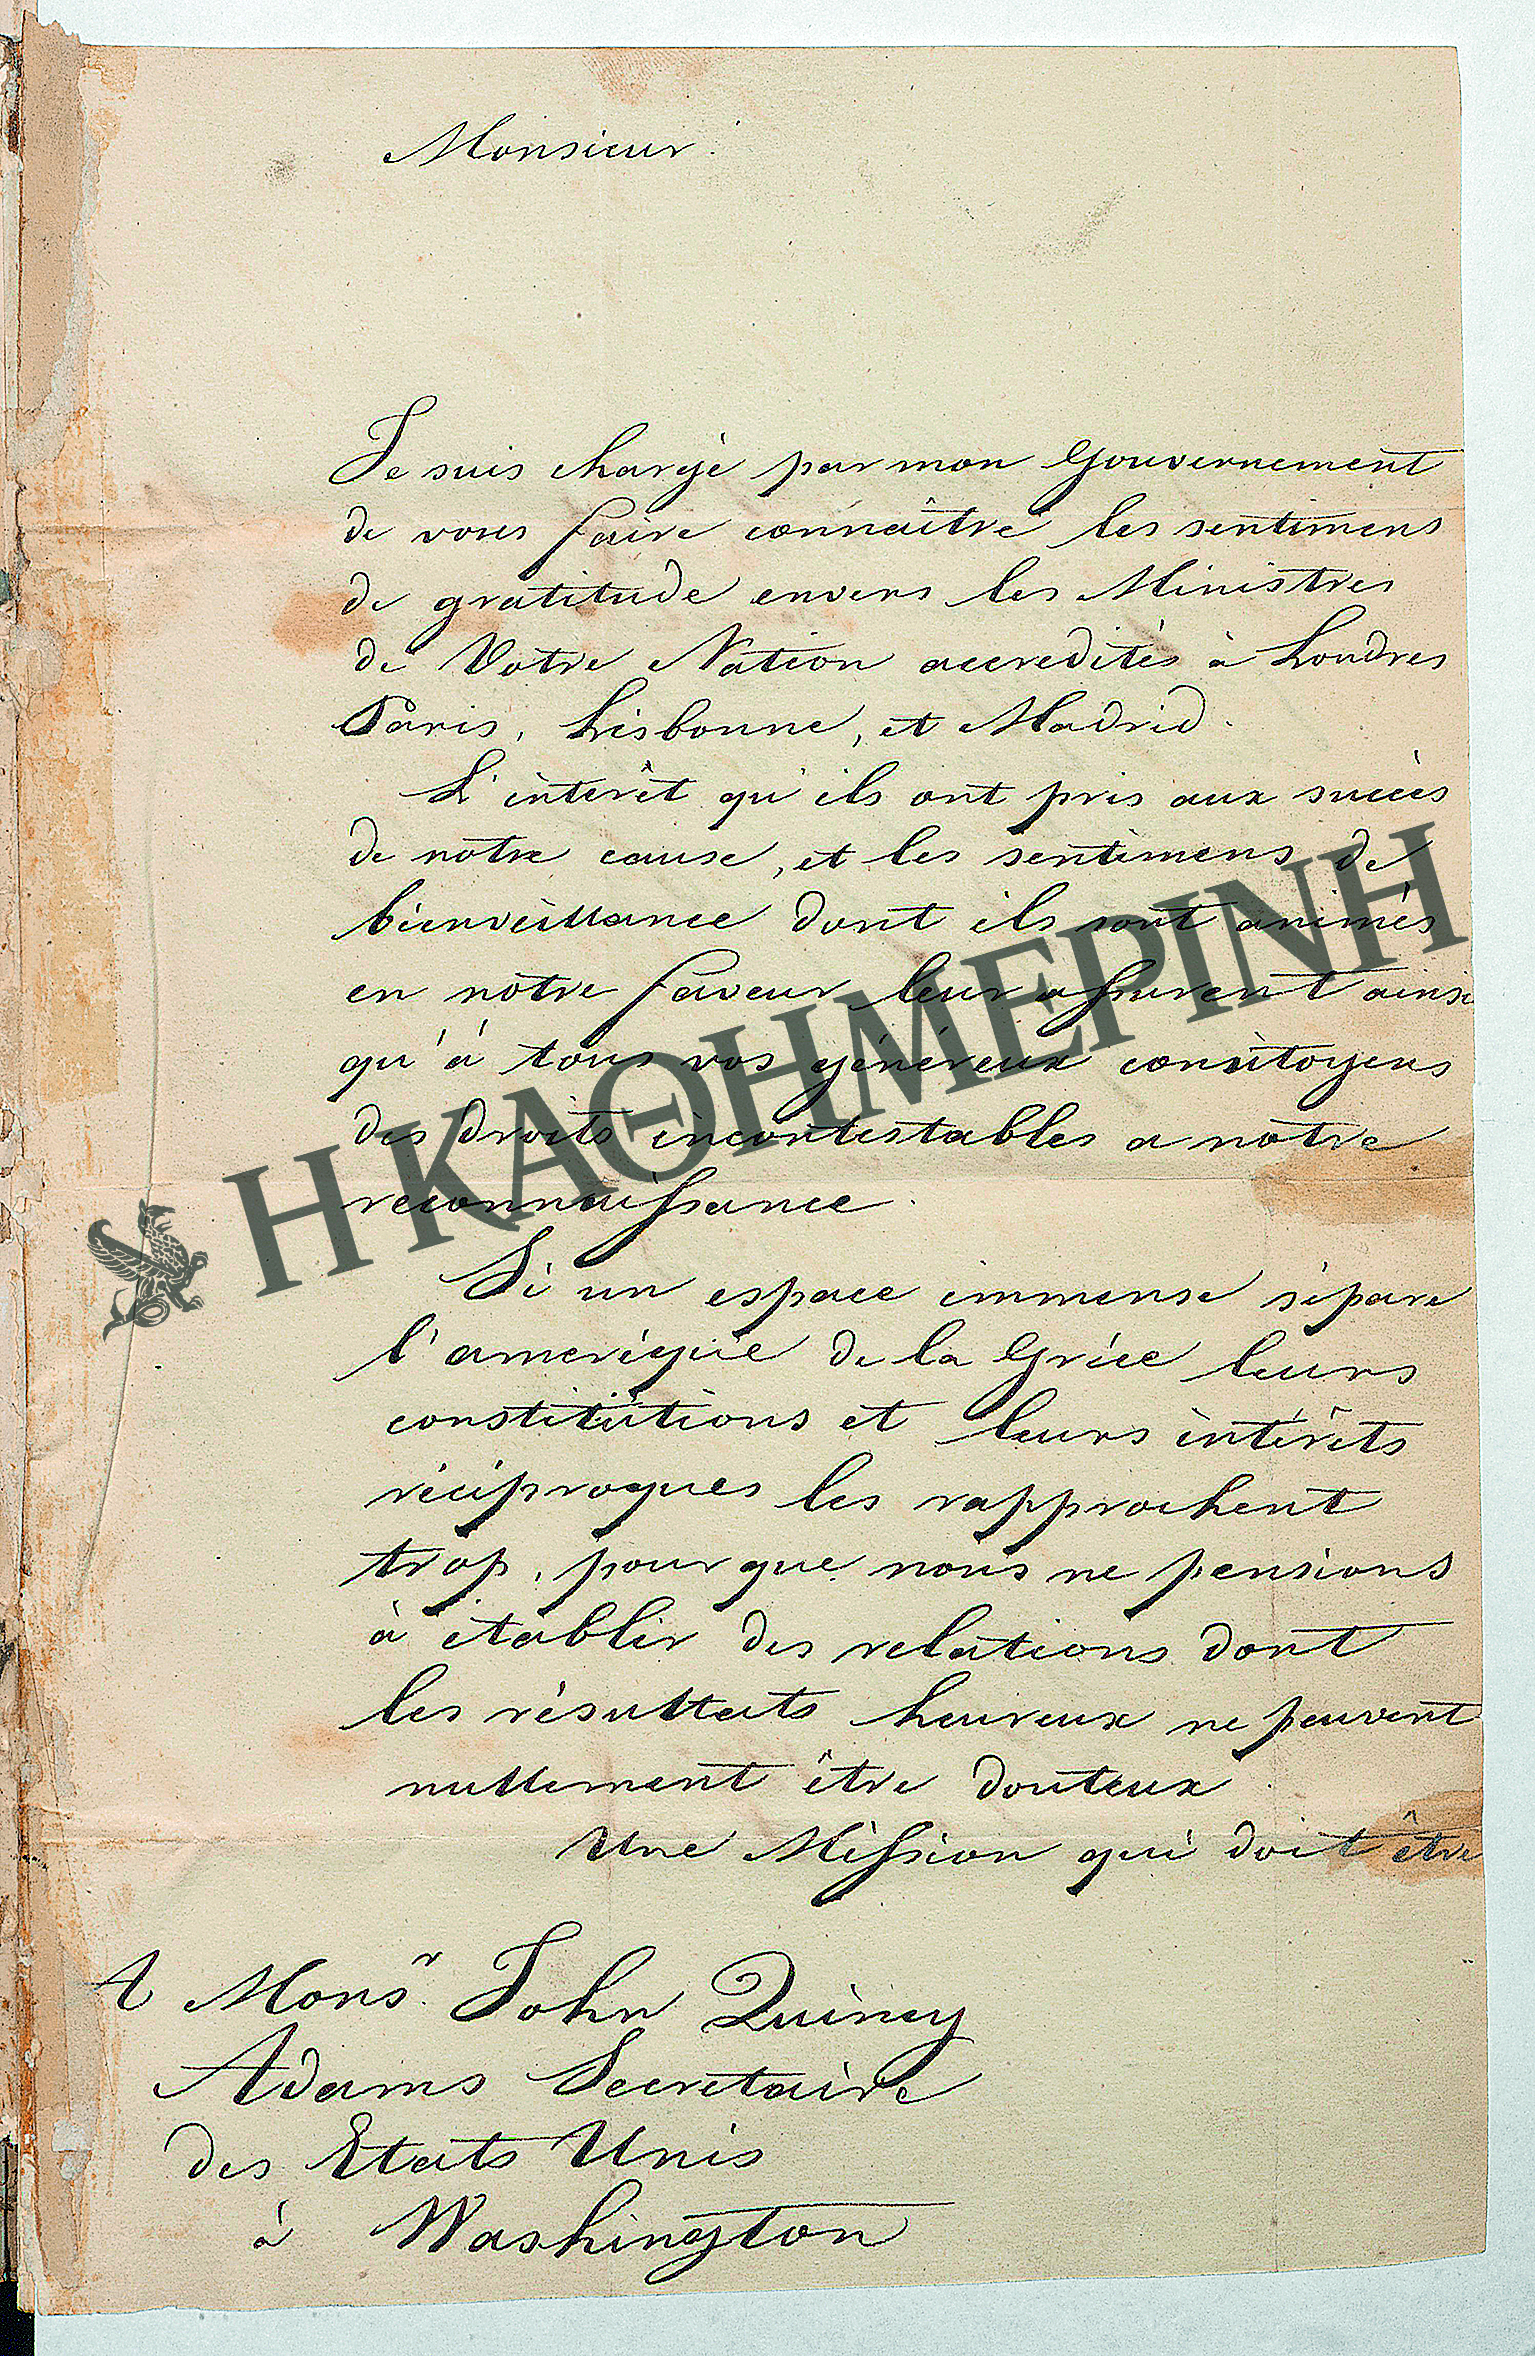 Monsieur.
Je suis chargé par mon Gouvernement
de vous faire connaître les sentimens
de gratitude envers les Ministres
de Votre Nation accredités à Londres
Paris, Lisbonne, et Madrid.
L'intérêt qu'ils ont pris aux succès
de notre cause, et les sentimens de
bienveillance dont ils sont animés
en notre faveur leur assurent ainsi
qu'à tous vos généreux concitoyens
des droits incontestables a notre
reconnaissance.
Si un espace immense sépare
l'amerique de la Grèce leurs
constitutions et leurs intérêts
réciproques les rapprochent
trop, pour que nous ne pensions
à établir des relations dont
les résultats heureux ne peuvent
nullement être douteux.
Une Mission qui doit être
A Monsr. John Quincy
Adams Secretaire
des Etats Unis
à Washington
Η ΚΑΘΗΜΕΡΙΝΗ